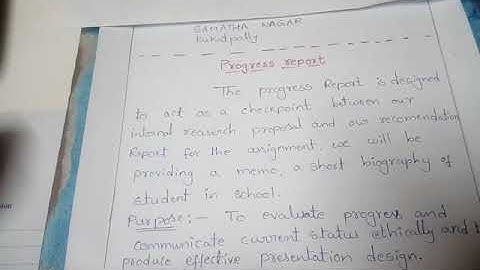 SAMATHA NAGAR
Kukatpally
Progress report
The progress Report is designed
to act as a checkpoint between our
intenal reaserch proposal and our recomendation
Report for the assignment, we will be
providing a memo, a short biography of
student in school.
Purpose:- To evaluate progress and
communicate current status ethically and t
produce effective presentation design.